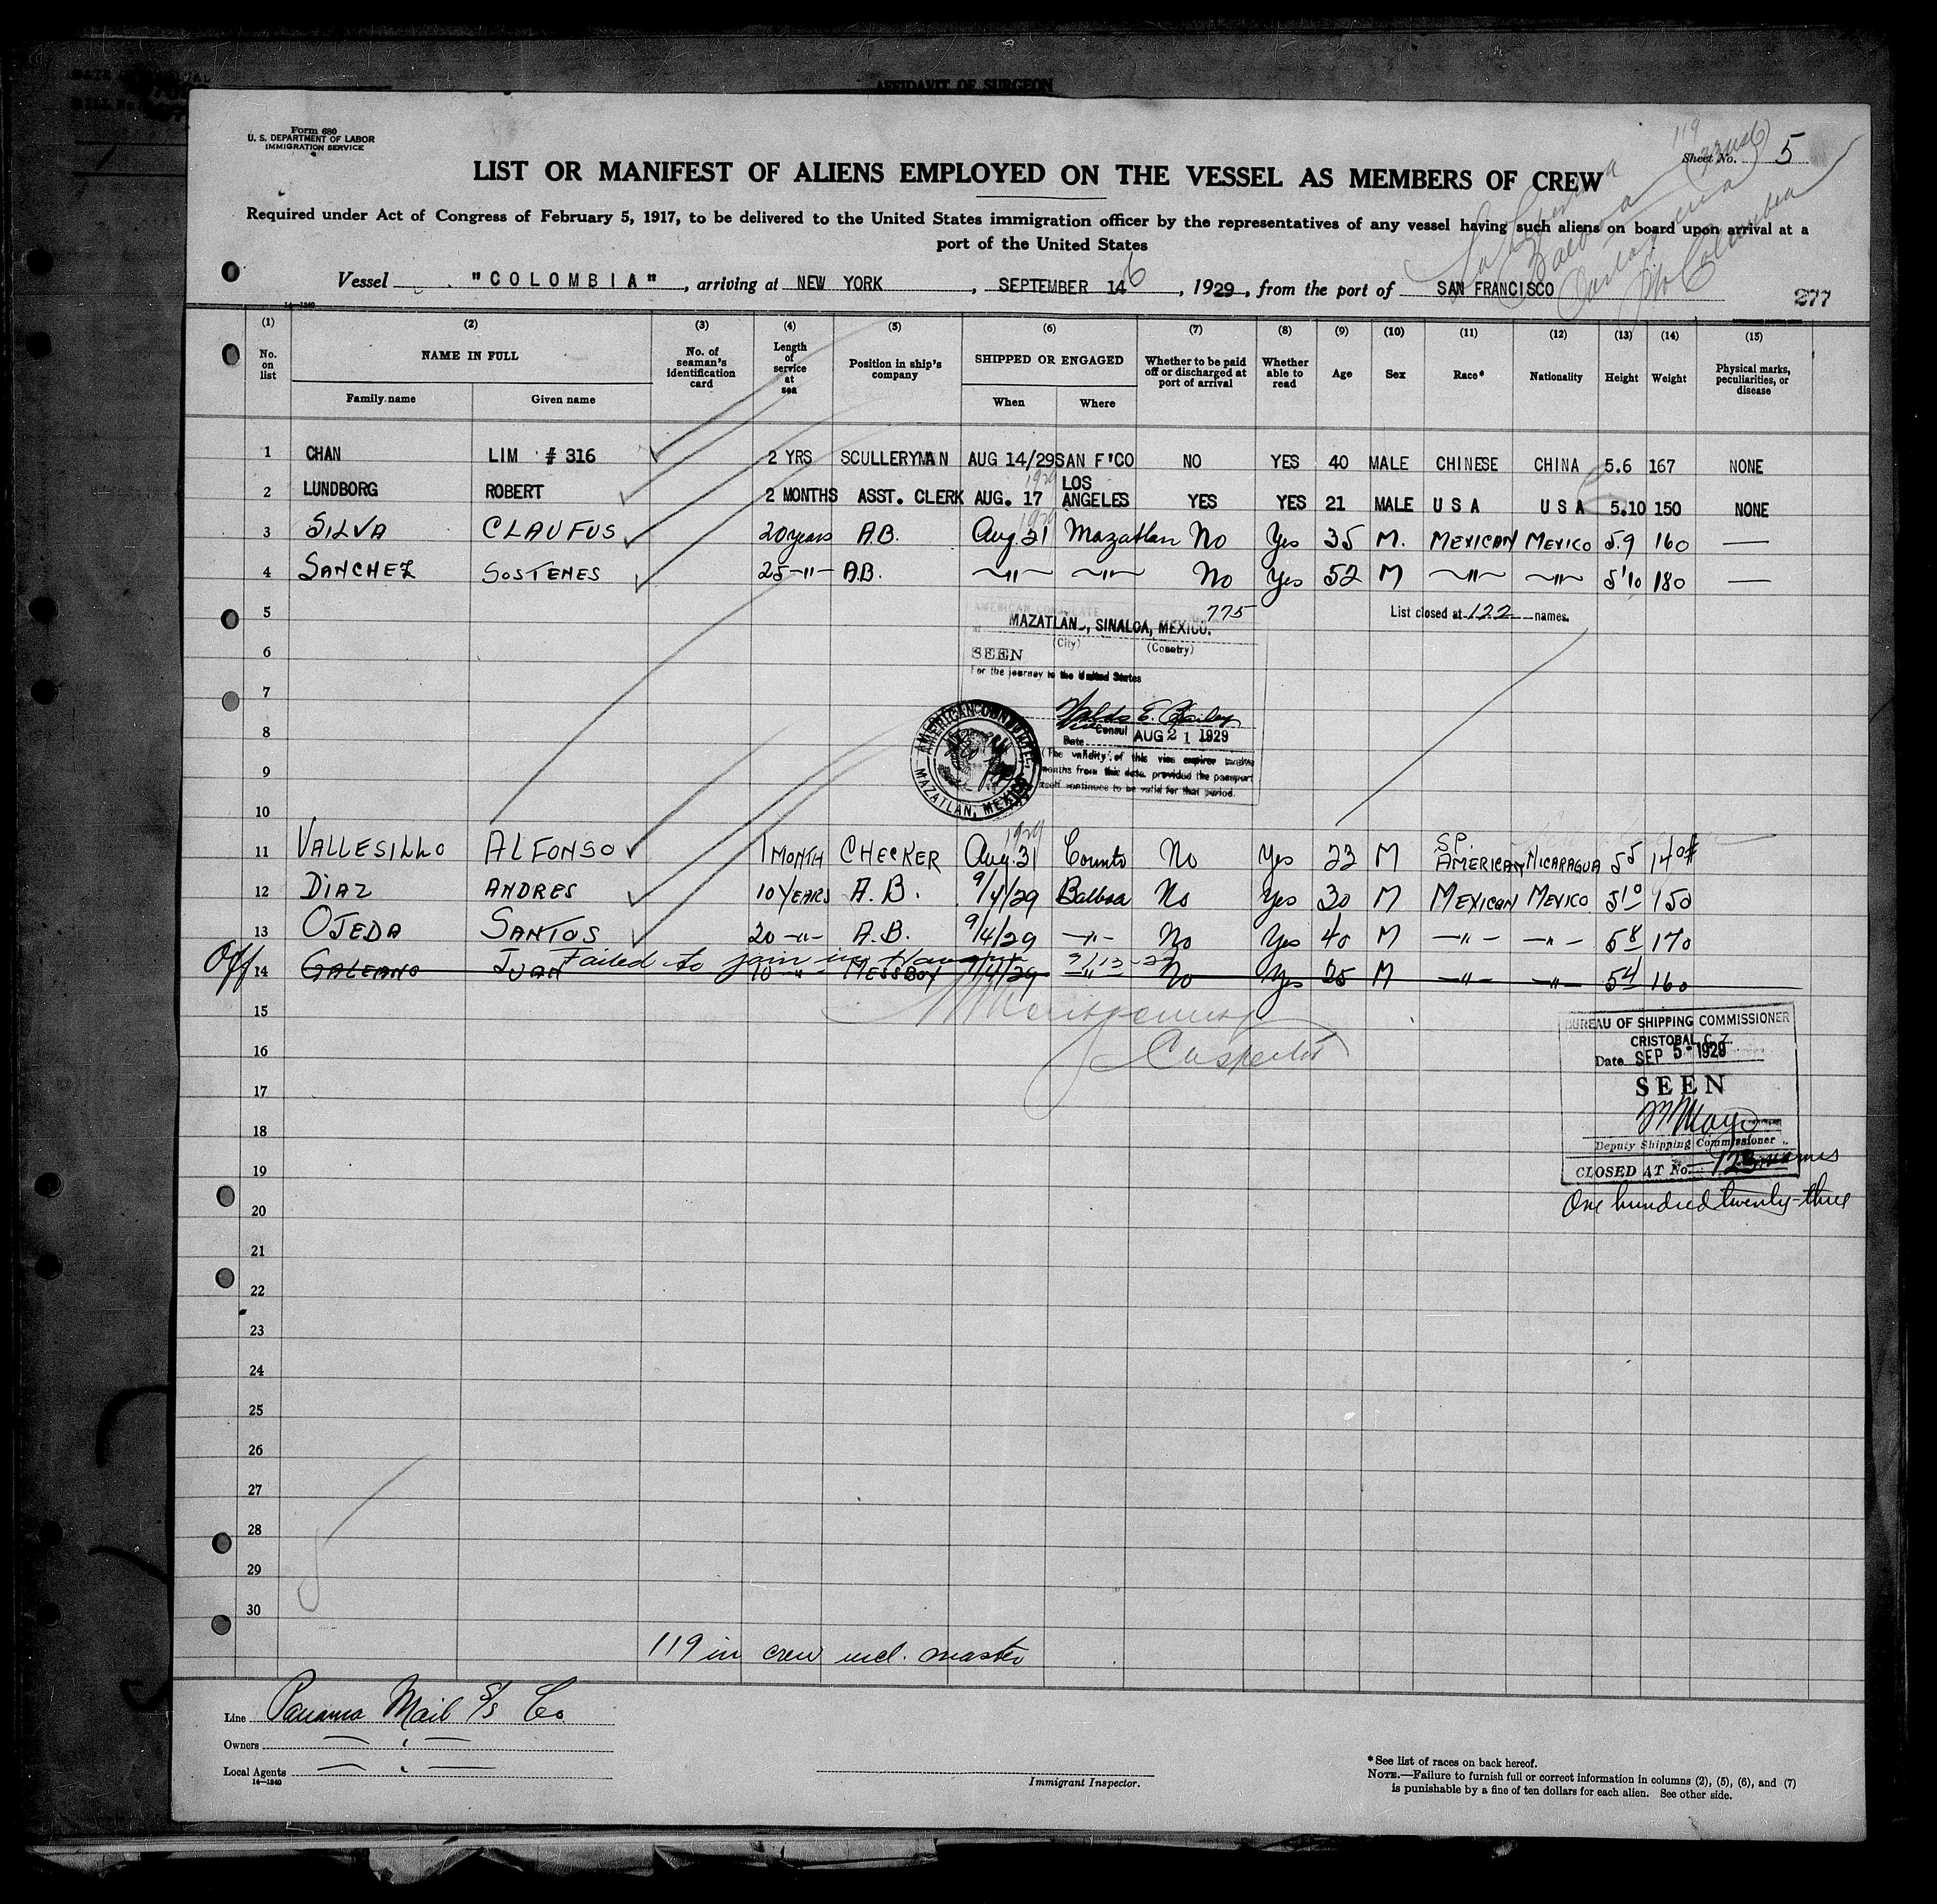 AFFIDAVIT OF SURGEON
Form 680
U. S. DEPARTMENT OF LABOR
IMMIGRATION SERVICE
119
Sheet No. 5
LIST OR MANIFEST OF ALIENS EMPLOYED ON THE VESSEL AS MEMBERS OF CREW
Required under Act of Congress of February 5, 1917, to be delivered to the United States immigration officer by the representatives of any vessel having such aliens on board upon arrival at a
port of the United States
La Libertad
Balboa
Vessel "COLOMBIA", arriving at NEW YORK, SEPTEMBER 14 6, 1929, from the port of SAN FRANCISCO
14-1240
277
(1) (2) (3) (4) (5) (6) (7) (8) (9) (10) (11) (12) (13) (14) (15)
No. on list
NAME IN FULL
Family name
Given name
No. of seaman's identification card
Length of service at sea
Position in ship's company
SHIPPED OR ENGAGED
When
Where
Whether to be paid off or discharged at port of arrival
Whether able to read
Age
Sex
Race*
Nationality
Height
Weight
Physical marks, peculiarities, or disease
1 CHAN LIM # 316 2 YRS SCULLERYMAN AUG 14/29 SAN F'CO NO YES 40 MALE CHINESE CHINA 5.6 167 NONE
2 LUNDBORG ROBERT 2 MONTHS ASST. CLERK AUG. 17 1929 LOS ANGELES YES YES 21 MALE USA USA 5.10 150 NONE
3 SILVA CLAUFUS 20 years A.B. Aug 21 1929 Mazatlan No Yes 35 M. MEXICAN MEXICO 5.9 160 —
4 SANCHEZ SOSTENES 25 -"- A.B. -"- -"- No Yes 52 M -"- -"- 5'10 180 —
5
6
7
8
9
10
AMERICAN CONSULATE
No. 775
MAZATLAN, SINALOA, MEXICO.
(City) (Country)
SEEN
For the journey to the United States
Vice Consul
Date AUG 21 1929
(The validity of this visa expires twelve
months from this date, provided the passport
itself continues to be valid for that period.
AMERICAN CONSULATE, MAZATLAN, MEXICO
List closed at 122 names.
11 VALLESILLO ALFONSO 1 MONTH CHECKER Aug. 31 1929 Corinto No Yes 22 M SP. AMERICAN NICARAGUA 5 5 140#
12 DIAZ ANDRES 10 YEARS A.B. 9/4/29 Balboa No Yes 30 M MEXICAN MEXICO 5 10 150
13 OJEDA SANTOS 20 -"- A.B. 9/4/29 -"- No Yes 40 M -"- -"- 5 8 170
Off 14 GALEANO JUAN 10 " MESSBOY 9/4/29 -"- No Yes 25 M -"- -"- 5 4 160
Failed to join in Havana 9/13-29
15
16
Inspector
17
18
19
20
21
22
23
24
25
26
27
28
29
30
BUREAU OF SHIPPING COMMISSIONER
CRISTOBAL, C. Z.
Date SEP 5 - 1929
SEEN
Deputy Shipping Commissioner
CLOSED AT No. 123 names
One hundred twenty-three
119 in crew incl. master
Line Panama Mail S/S Co.
Owners — " —
Local Agents — " —
14-1240
Immigrant Inspector.
*See list of races on back hereof.
NOTE.—Failure to furnish full or correct information in columns (2), (5), (6), and (7)
is punishable by a fine of ten dollars for each alien. See other side.